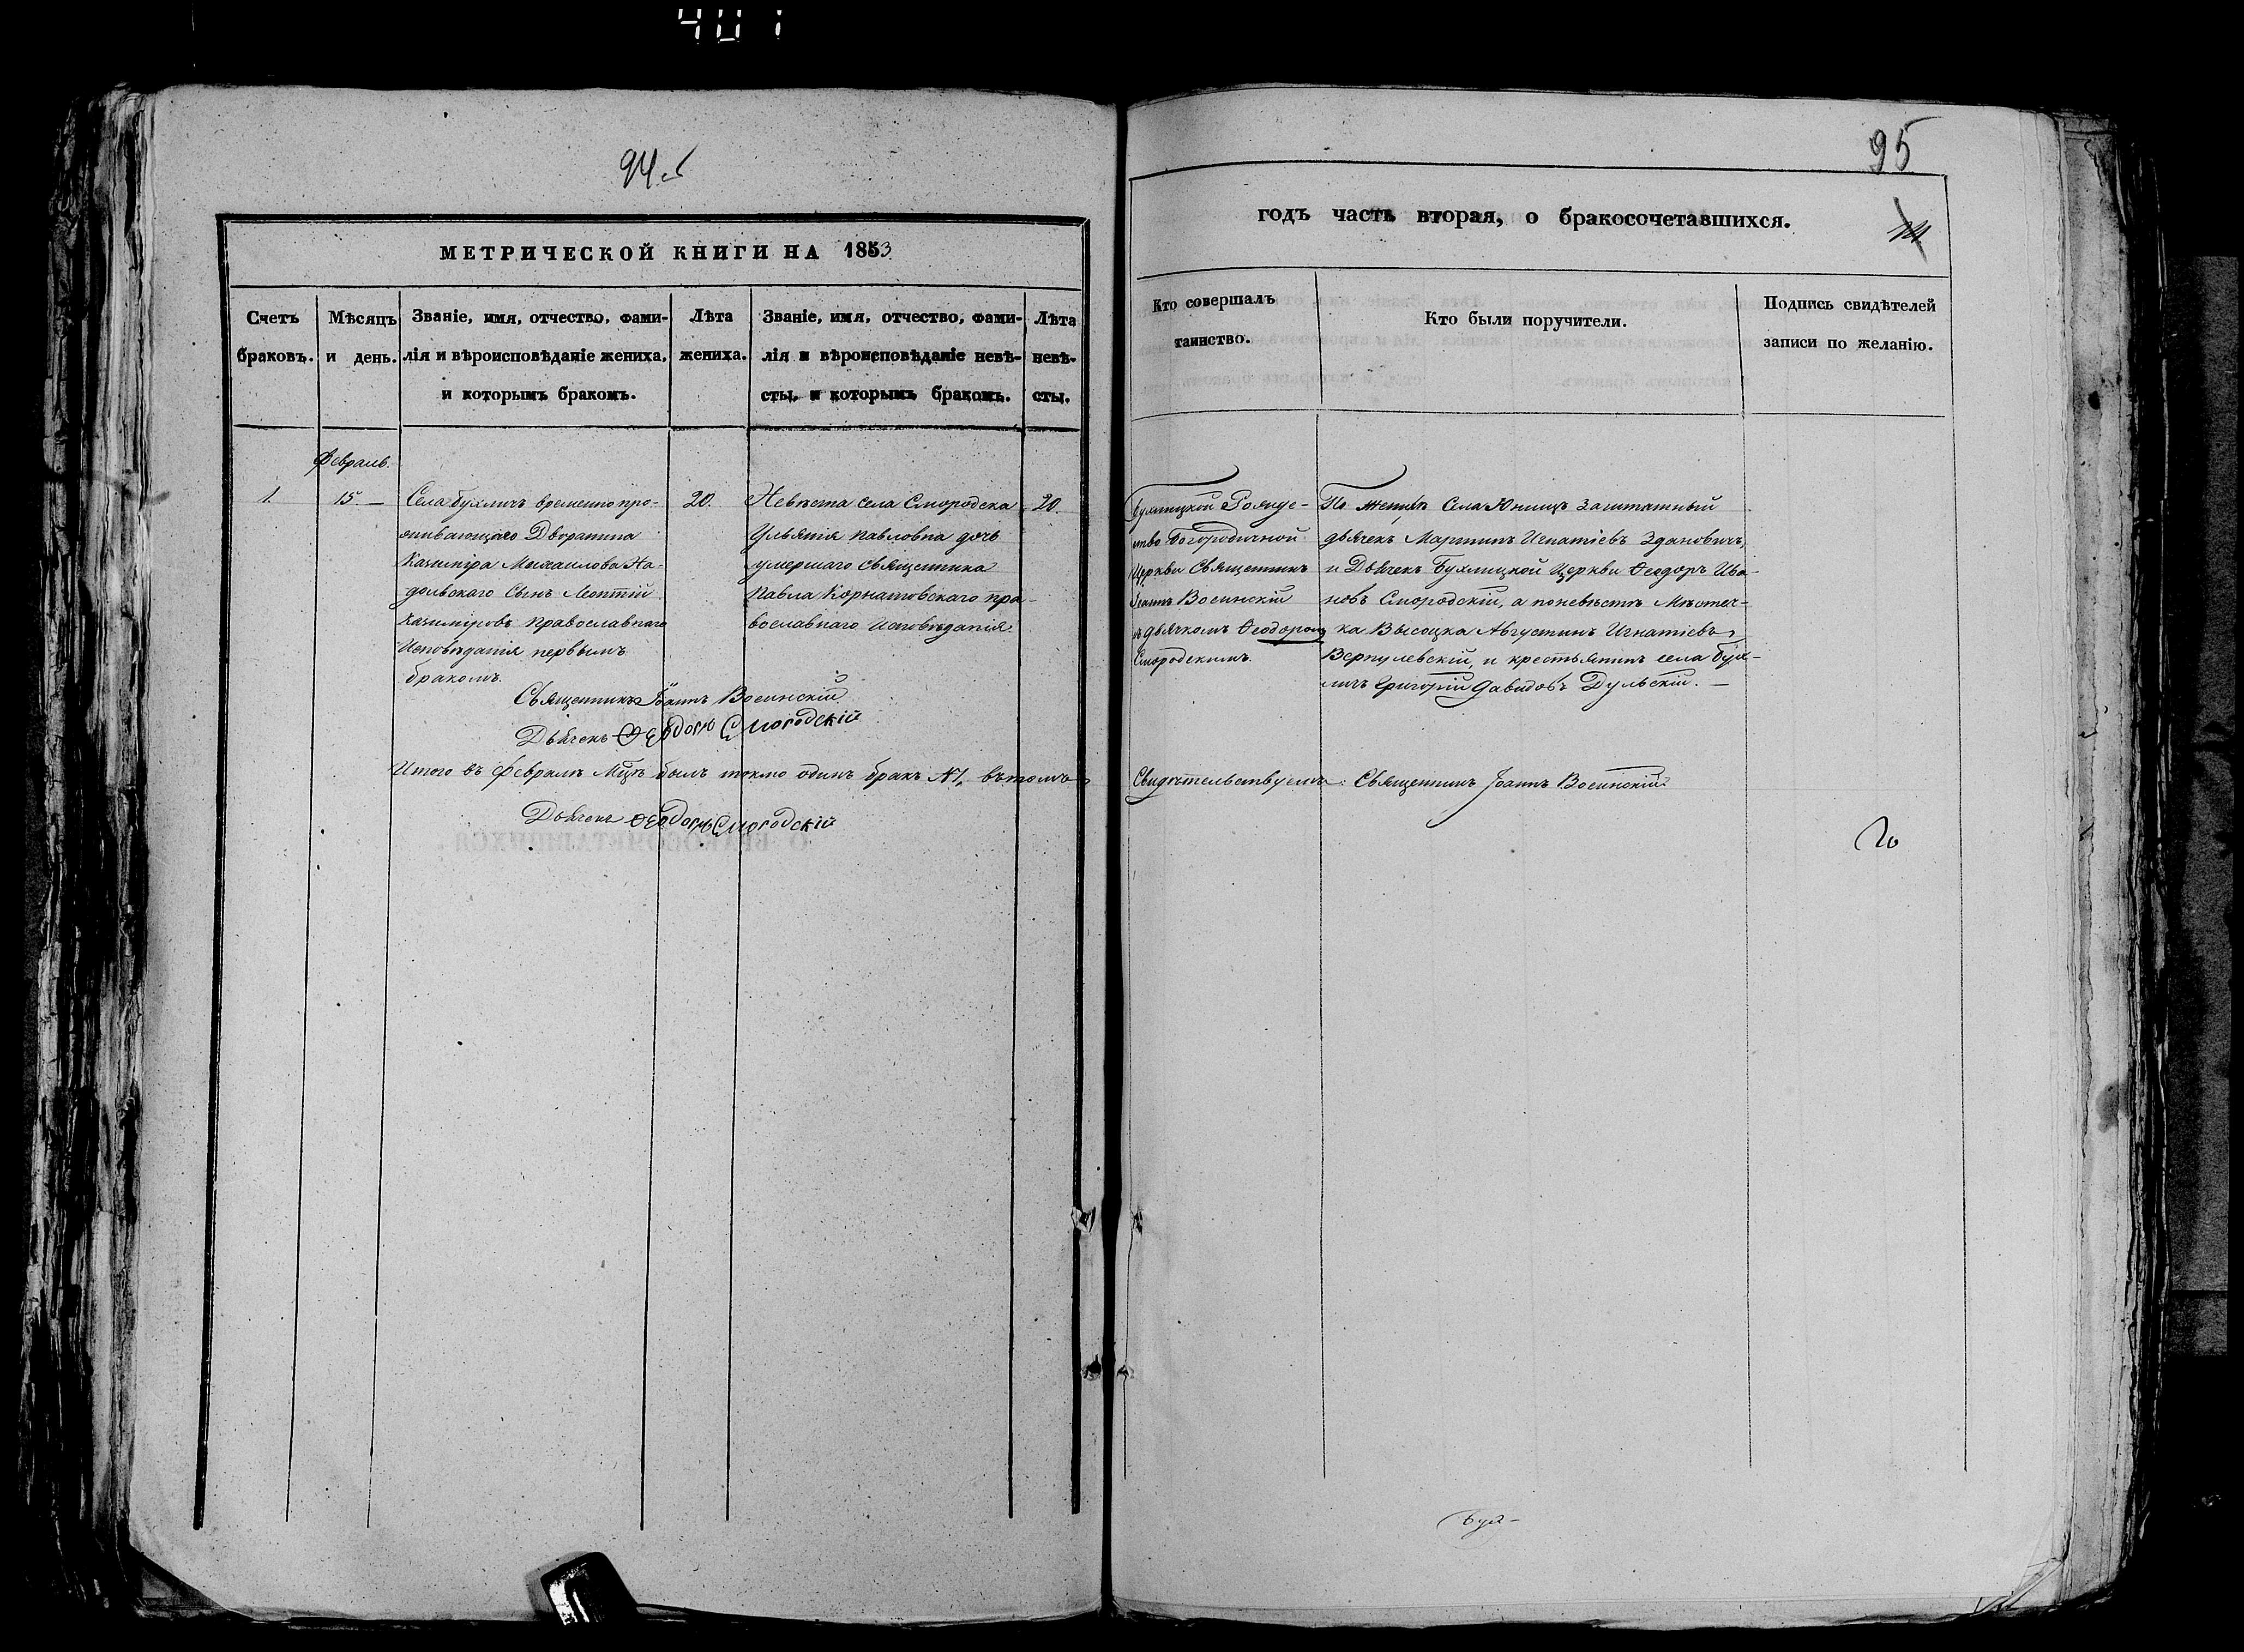 401
94.
МЕТРИЧЕСКОЙ КНИГИ НА 1853
Счетъ браковъ.
Мѣсяцъ и день.
Званіе, имя, отчество, фами-
лія и вѣроисповѣданіе жениха,
и которымъ бракомъ.
Лѣта
жениха.
Званіе, имя, отчество, фами-
лія и вѣроисповѣданіе невѣ-
сты, и которымъ бракомъ.
Лѣта
невѣ-
сты.
Февраль.
1.
15.—
Села Бухличъ временно про-
живающаго Дворянина
Казиміра Михаилова На-
дольскаго Сынъ Леонтій
Казиміровъ православнаго
Исповѣданія первымъ
бракомъ.
20.
Невѣста села Смородска
Ульянія Павловна дочь
умершаго священника
Павла Корнатовскаго пра-
вославнаго Исповѣданія.
20.
Священникъ Іоаннъ Восинскій
Дьячекъ Ѳеодоръ Смородскій
Итого въ Февралѣ Мцѣ былъ токмо одинъ бракъ №1, въ томъ
Дьячекъ Ѳеодоръ Смородскій
95
14
годъ часть вторая, о бракосочетавшихся.
Кто совершалъ
таинство.
Кто были поручители.
Подпись свидѣтелей
записи по желанію.
Бухлицкой Рожде-
ство Богородичной
Церкви Священникъ
Іоаннъ Восинскій
съ дьячкомъ Ѳеодоромъ
Смородскимъ.
По Женихѣ Села Юницъ Заштатный
дьячекъ Мартинъ Игнатіевъ Здановичъ,
и Дьячекъ Бухлицкой Церкви Ѳеодоръ Ива-
новъ Смородскій, а по невѣстѣ Мѣстеч-
ка Высоцка Августинъ Игнатіевъ
Вернулевскій, и крестьянинъ села Бух-
личъ Григорій Давидовъ Дульскій.—
Свидѣтельствуемъ: Священникъ Іоаннъ Восинскій
Бух-